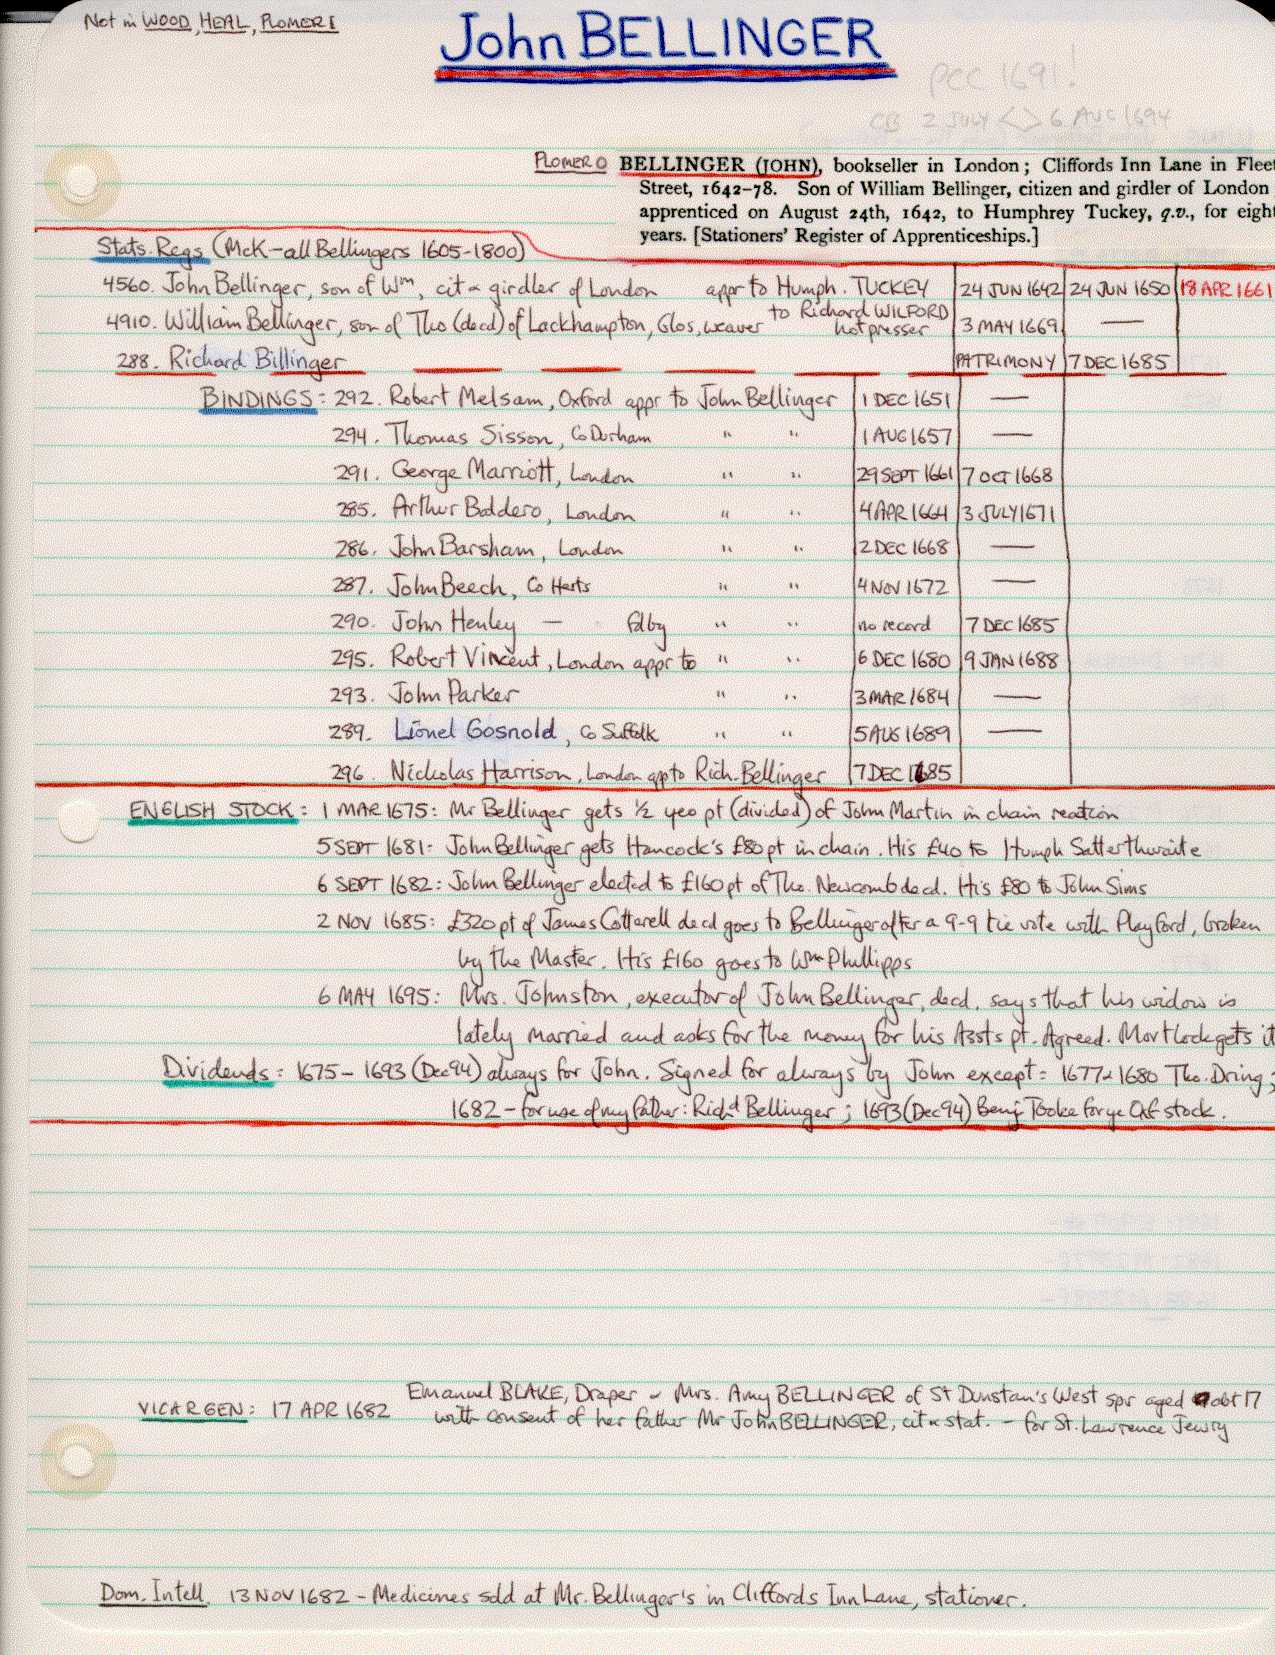 Not in WOOD, HEAL, PLOMER I
John BELLINGER
PCC 1691!
CB 2 JULY <> 6 AUG 1694
PLOMER O BELLINGER (JOHN), bookseller in London; Cliffords Inn Lane in Fleet
Street, 1642–78. Son of William Bellinger, citizen and girdler of London
apprenticed on August 24th, 1642, to Humphrey Tuckey, q.v., for eight
years. [Stationers' Register of Apprenticeships.]
Stats. Regs (McK - all Bellingers 1605-1800)
4560. John Bellinger, son of Wm, cit & girdler of London appr to Humph. TUCKEY 24 JUN 1642 24 JUN 1650 18 APR 1661
4910. William Bellinger, son of Tho (decd) of Lackhampton, Glos, weaver to Richard WILFORD hotpresser 3 MAY 1669 —
288. Richard Billinger PATRIMONY 7 DEC 1685
BINDINGS: 292. Robert Melsam, Oxford appr to John Bellinger 1 DEC 1651 —
294. Thomas Sisson, Co Durham " " 1 AUG 1657 —
291. George Marriott, London " " 29 SEPT 1661 7 OCT 1668
285. Arthur Boldero, London " " 4 APR 1664 3 JULY 1671
286. John Barsham, London " " 2 DEC 1668 —
287. John Beech, Co Herts " " 4 NOV 1672 —
290. John Henley — fd by " " no record 7 DEC 1685
295. Robert Vincent, London appr to " " 6 DEC 1680 9 JAN 1688
293. John Parker " " 3 MAR 1684 —
289. Lionel Gosnold, Co Suffolk " " 5 AUG 1689 —
296. Nickolas Harrison, London app to Rich. Bellinger 7 DEC 1685
ENGLISH STOCK: 1 MAR 1675: Mr Bellinger gets ½ yeo pt (divided) of John Martin in chain reaction
5 SEPT 1681: John Bellinger gets Hancock's £80 pt in chain. His £40 to Humph Satterthwaite
6 SEPT 1682: John Bellinger elected to £160 pt of Tho. Newcomb decd. His £80 to John Sims
2 NOV 1685: £320 pt of James Cotterell decd goes to Bellinger after a 9-9 tie vote with Playford, broken
by the Master. His £160 goes to Wm Phillipps
6 MAY 1695: Mrs. Johnston, executor of John Bellinger, decd, says that his widow is
lately married and asks for the money for his Assts pt. Agreed. Mortlock gets it
Dividends: 1675-1693 (Dec 94) always for John. Signed for always by John except: 1677 & 1680 Tho. Dring;
1682 - for use of my father: Richd Bellinger; 1693 (Dec 94) Benj Tooke for ye Oxf stock.
VICAR GEN: 17 APR 1682 Emanuel BLAKE, Draper ~ Mrs. Amy BELLINGER of St Dunstan's West spr aged abt 17
with consent of her father Mr John BELLINGER, cit & stat. - for St. Lawrence Jewry
Dom. Intell. 13 NOV 1682 - Medicines sold at Mr. Bellinger's in Cliffords Inn Lane, stationer.